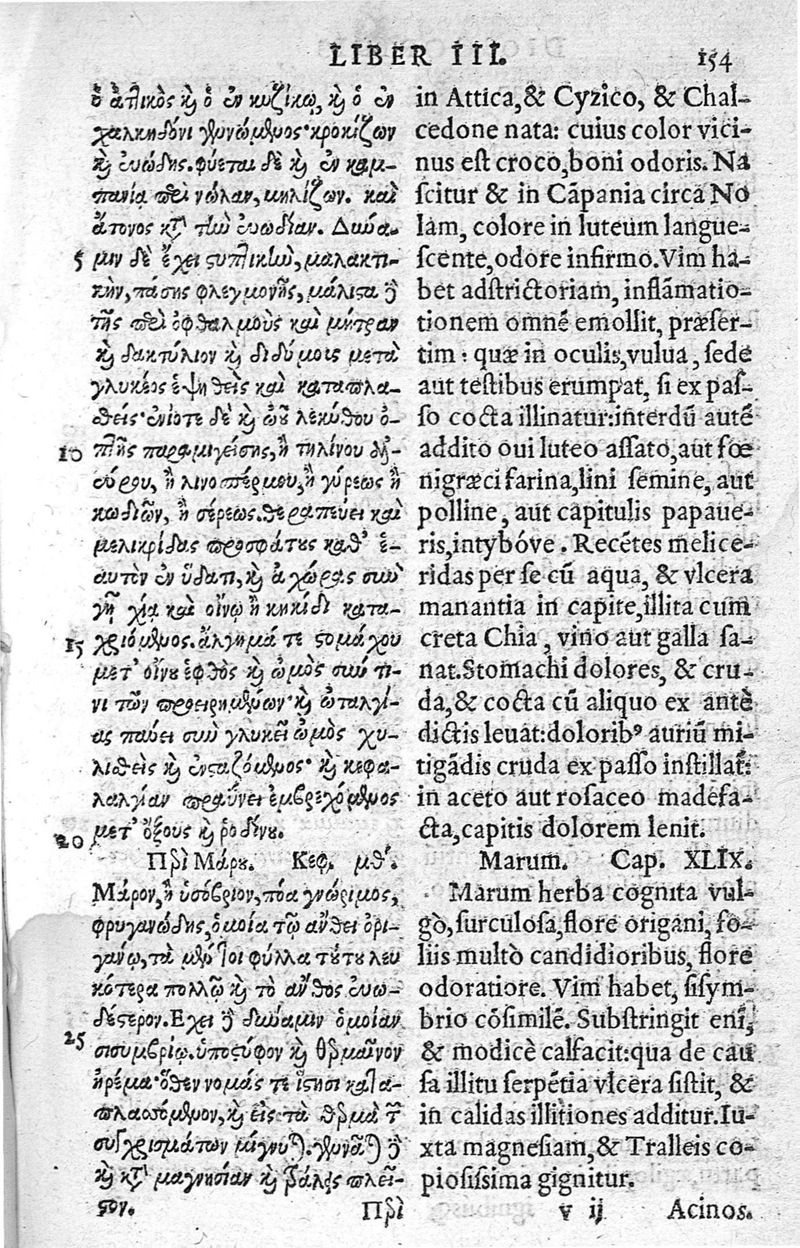 LIBER III. 154
ὁ ἀττικὸς κὴ ὁ ἐν κυζίκῳ, κὴ ὁ ἐν
χαλκηδόνι γεννώμενος· κροκίζων
κὴ εὐώδης. φύεται δὲ κὴ ἐν καμ-
πανία περὶ νώλαν, μηλίζων. καὶ
ἄτονος κτ̀ τὴν εὐωδίαν. Δύνα-
5 μιν δὲ ἔχει στυπτικὴν, μαλακτι-
κὴν, πάσης φλεγμονῆς, μάλιστα δὲ
τῆς περὶ ὀφθαλμοὺς καὶ μήτραν
κὴ δακτύλιον κὴ διδύμοις μετὰ
γλυκέος ἑψηθεὶς καὶ καταπλα-
σθείς· ἐνίοτε δὲ κὴ ὠοῦ λεκύθου ὀ-
10 πτῆς παραμιγείσης, ἢ τηλίνου ἀλ-
εύρου, ἢ λινοσπέρμου, ἢ γύρεως ἢ
κωδιῶν, ἢ σέρεως. θεραπεύει καὶ
μελικρίδας προσφάτους καθ' ἑ-
αυτὸν ἐν ὕδατι, κὴ ἀχώρας σὺν
γῇ χίᾳ καὶ οἴνῳ ἢ κηκίδι κατα-
15 χριόμενος. ἄλγημά τε στομάχου
μετ' οἴνου ἑφθὸς κὴ ὠμὸς σύν τι-
νι τῶν προειρημένων· κὴ ὠταλγί-
ας παύει σὺν γλυκεῖ ὠμὸς χυ-
λισθεὶς κὴ ἐνσταζόμενος· κὴ κεφα-
λαλγίαν πραΰνει ἐμβρεχόμενος
20 μετ' ὄξους κὴ ῥοδίνου.
Περὶ Μάρου. Κεφ. μθʹ.
Μάρον, ἢ ὑσόβριον, πόα γνώριμος,
φρυγανώδης, ὁμοία τῷ ἄνθει ὀρι-
γάνῳ, τὰ μέντοι φύλλα τούτου λευ
κότερα πολλῷ κὴ τὸ ἄνθος εὐω-
δέστερον. Ἔχει δὲ δύναμιν ὁμοίαν
25 σισυμβρίῳ. ὑπόστυφον κὴ θερμαῖνον
ἠρέμα· ὅθεν νομάς τε ἵστησι κατα-
πλασσόμενον, κὴ εἰς τὰ θερμὰ τῶν
συγχρισμάτων μίγνυται. γεννᾶται δὲ
κὴ κτ̀ μαγνησίαν κὴ βάλεις πλεῖ-
στον. Περὶ
in Attica, & Cyzico, & Chal-
cedone nata: cuius color vici-
nus est croco, boni odoris. Na
scitur & in Cāpania circa No
lam, colore in luteum langue-
scente, odore infirmo. Vim ha-
bet adstrictoriam, inflāmatio-
tionem omnē emollit, præser-
tim: quæ in oculis, vulua, sede
aut testibus erumpat, si ex pas-
so cocta illinatur: interdū autē
addito oui luteo assato, aut fœ
nigræci farina, lini semine, aut
polline, aut capitulis papaue-
ris, intybóve. Recētes melice-
ridas per se cū aqua, & vlcera
manantia in capite, illita cum
creta Chia, vino aut galla sa-
nat. Stomachi dolores, & cru-
da, & cocta cū aliquo ex antè
dictis leuat: dolorib⁹ auriū mi-
tigādis cruda ex passo instillat:
in aceto aut rosaceo madefa-
cta, capitis dolorem lenit.
Marum. Cap. XLIX.
Marum herba cognita vul-
gò, surculosa, flore origani, fo-
liis multò candidioribus, flore
odoratiore. Vim habet, sisym-
brio cōsimilē. Substringit eni̅,
& modicè calfacit: qua de cau
sa illitu serpētia vlcera sistit, &
in calidas illitiones additur. Iu-
xta magnesiam, & Tralleis co-
piosissima gignitur.
v ij Acinos.